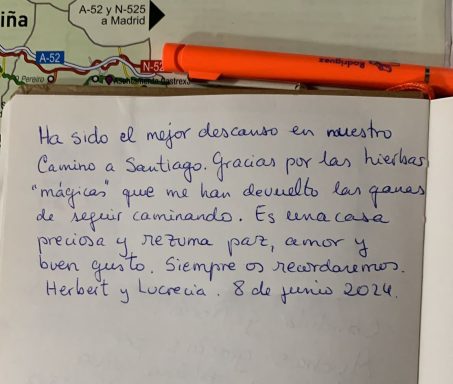 iña
A-52 y N-525
a Madrid
A-52
N-52
Pereiro
Rodríguez
Ha sido el mejor descanso en nuestro
Camino a Santiago. Gracias por las hierbas
"mágicas" que me han devuelto las ganas
de seguir caminando. Es una casa
preciosa y rezuma paz, amor y
buen gusto. Siempre os recordaremos.
Herbert y Lucrecia. 8 de junio 2024.